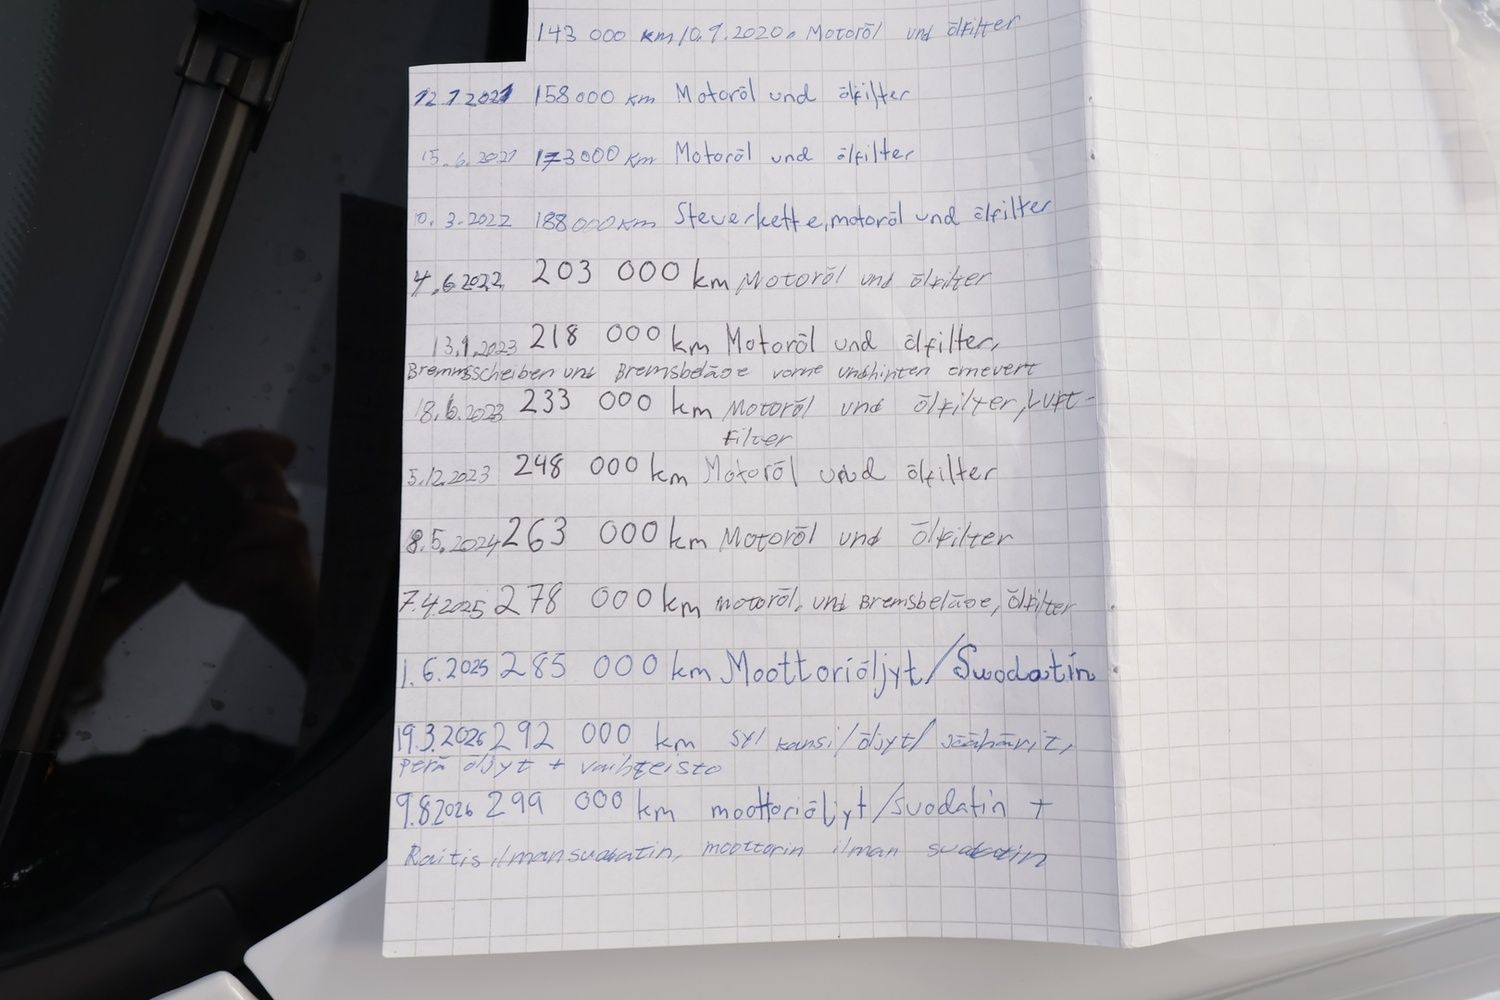 143 000 km 10.9.2020. Motoröl und ölfilter
12.1.2021 158000 km Motoröl und ölfilter
15.6.2021 173000 km Motoröl und ölfilter
10.3.2022 188000 km Steuerkette, motoröl und ölfilter
4.6.2022 203 000 km Motoröl und ölfilter
13.1.2023 218 000 km Motoröl und ölfilter,
Bremsscheiben und Bremsbeläge vorne und hinten erneuert
18.6.2023 233 000 km Motoröl und ölfilter, Luft-
filter
5.12.2023 248 000 km Motoröl und ölfilter
8.5.2024 263 000 km Motoröl und Ölfilter
7.4.2025 278 000 km motoröl, und Bremsbeläge, Ölfilter
1.6.2025 285 000 km Moottoriöljyt/Suodatin
19.3.2026 292 000 km syl kansi/öljyt/
perä öljyt + vaihteisto
9.8.2026 299 000 km moottoriöljyt/suodatin +
Raitis ilmansuodatin, moottorin ilman suodatin